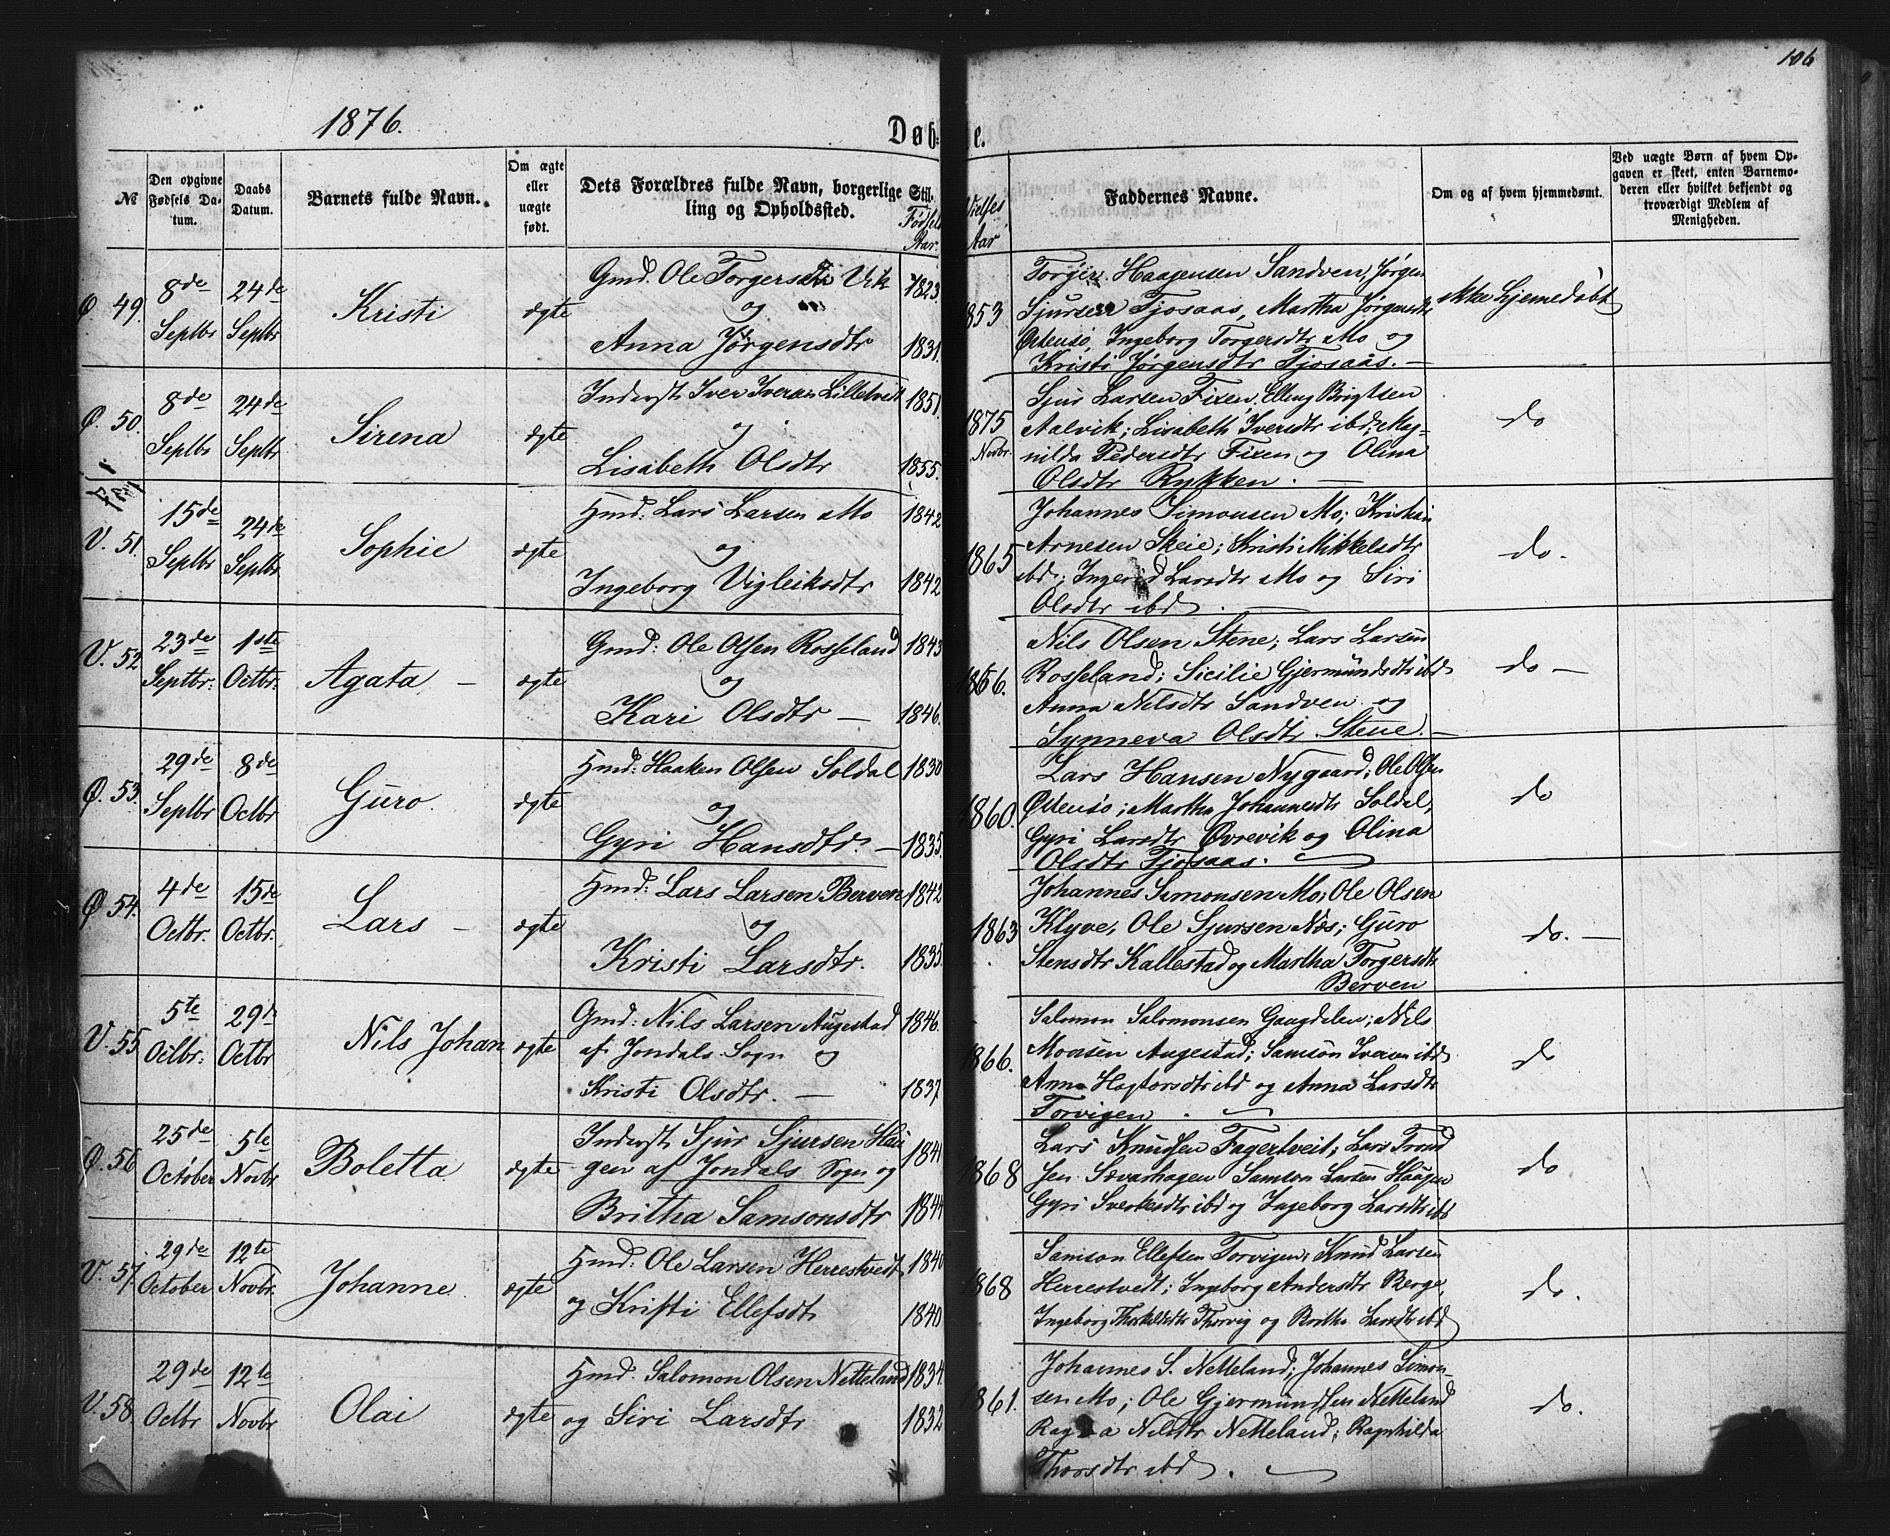 106
1876.
Døb- e.
№
Den opgivne Fødsels Datum.
Daabs Datum.
Barnets fulde Navn.
Om ægte eller uægte født.
Dets Forældres fulde Navn, borgerlige Stilling og Opholdssted.
Fødsels Aar.
Vielses Aar
Faddernes Navne.
Om og af hvem hjemmedøbt.
Ved uægte Børn af hvem Opgaven er skeet, enten Barnemoderen eller hvilket bekjendt og troværdigt Medlem af Menigheden.
Ø 49. 8de Septbr 24de Septbr Kristi ægte
Gmd. Ole Torgersen Vik 1823
og
Anna Jørgensdtr 1831.
1853
Torgir Haagensen Sandven, Jørgen
Sjursen Tjosaas, Martha Jørgensdtr
Østensø, Ingeborg Torgersdtr Mo og
Kristi Jørgensdtr Tjosaas. —
ikke hjemedøbt
Ø. 50. 8de Septbr 24de Septbr Sirena ægte
Inderst Iver Iversen Lilletvedt 1851.
og
Lisabeth Olsdtr 1855.
1875 Novbr.
Sjur Larsen Fixen, Elling Brigtsen
Aalvik; Lisabeth Iversdtr ibd; Mag-
nilda Pedersdtr Fixen og Olina
Olsdtr Rykken. —
do
V. 51. 15de Septbr 24de Septbr Sophie ægte
Hmd: Lars Larsen Mo 1842
og
Ingeborg Vigleiksdtr 1842
1865
Johannes Simonsen Mo; Kristian
Arnesen Skeie; Kristi Mikkelsdtr
ibd; Larsdtr Mo og Siri
Olsdtr ibd.
do.
V. 52 23de Septbr: 1ste Octbr: Agata — ægte
Gmd: Ole Olsen Rosseland 1843
og
Kari Olsdtr — 1846.
Nils Olsen Stene; Lars Larsen
Rosseland; Sicilie Gjermundsdtr ibd
Anna Nilsdtr Sandven og
Synneva Olsdtr Stene. —
do —
Ø. 53. 29de Septbr 8de Octbr Guro. ægte
Hmd: Haaken Olsen Soldal 1830
og
Gyri Hansdtr. — 1835.
1860.
Lars Hansen Nygaard; Ole Olsen
Østensø; Martha Johannesdtr Soldal,
Gyri Larsdtr Øvrevik og Olina
Olsdtr Tjosaas.
do
Ø 54. 4de Octbr. 15de Octbr. Lars — ægte
Hmd: Lars Larsen Berven 1842
og
Kristi Larsdtr. 1835.
1863
Johannes Simonsen Mo; Ole Olsen
Klyve, Ole Sjursen Næs; Guro
Stensdtr Kallestad og Martha Torgersdtr
Berven
do. —
V. 55. 5te Octbr: 29de Octbr Nils Johan ægte
Gmd: Nils Larsen Augestad 1846.
af Jondals Sogn og
Kristi Olsdtr. — 1837
1866.
Salomon Salomonsen Gaagdelen; Nils
Monsen Augestad; Samson Iversen ibd
Anna ibd og Anna Larsdtr
Torvigen.
do
Ø. 56 25de October 5te Novbr Boletta. ægte
Inderst Sjur Sjursen Haa- 1841
gen af Jondals Sogn og
Britha Samsonsdtr 1844
1868
Lars Knudsen Fagertveit; Lars Trond
sen Samson Larsen Haagen
Gyri Sverkesdtr ibd og Ingeborg Larsdtr ibd
do
V. 57. 29de October 12te Novbr. Johanne. ægte
Hmd: Ole Larsen Herrestvedt 1840
og Kristi Ellefsdtr 1840
1868
Samson Ellefsen Torvigen, Knud Larsen
Herrestvedt; Ingeborg Andersdtr Berge,
Ingeborg Thorkildsdtr Thorvig og Britha Larsdtr ibd
do.
V. 58. 29de Octbr 12te Novbr Olai ægte
Hmd. Salomon Olsen Netteland 1834
og Siri Larsdtr 1832
1861.
Johannes S. Netteland; Johannes Simon-
sen Mo; Ole Gjermundsen Netteland
Nilsdtr Netteland; Ragnhilda
Thorsdtr ibd.
do.